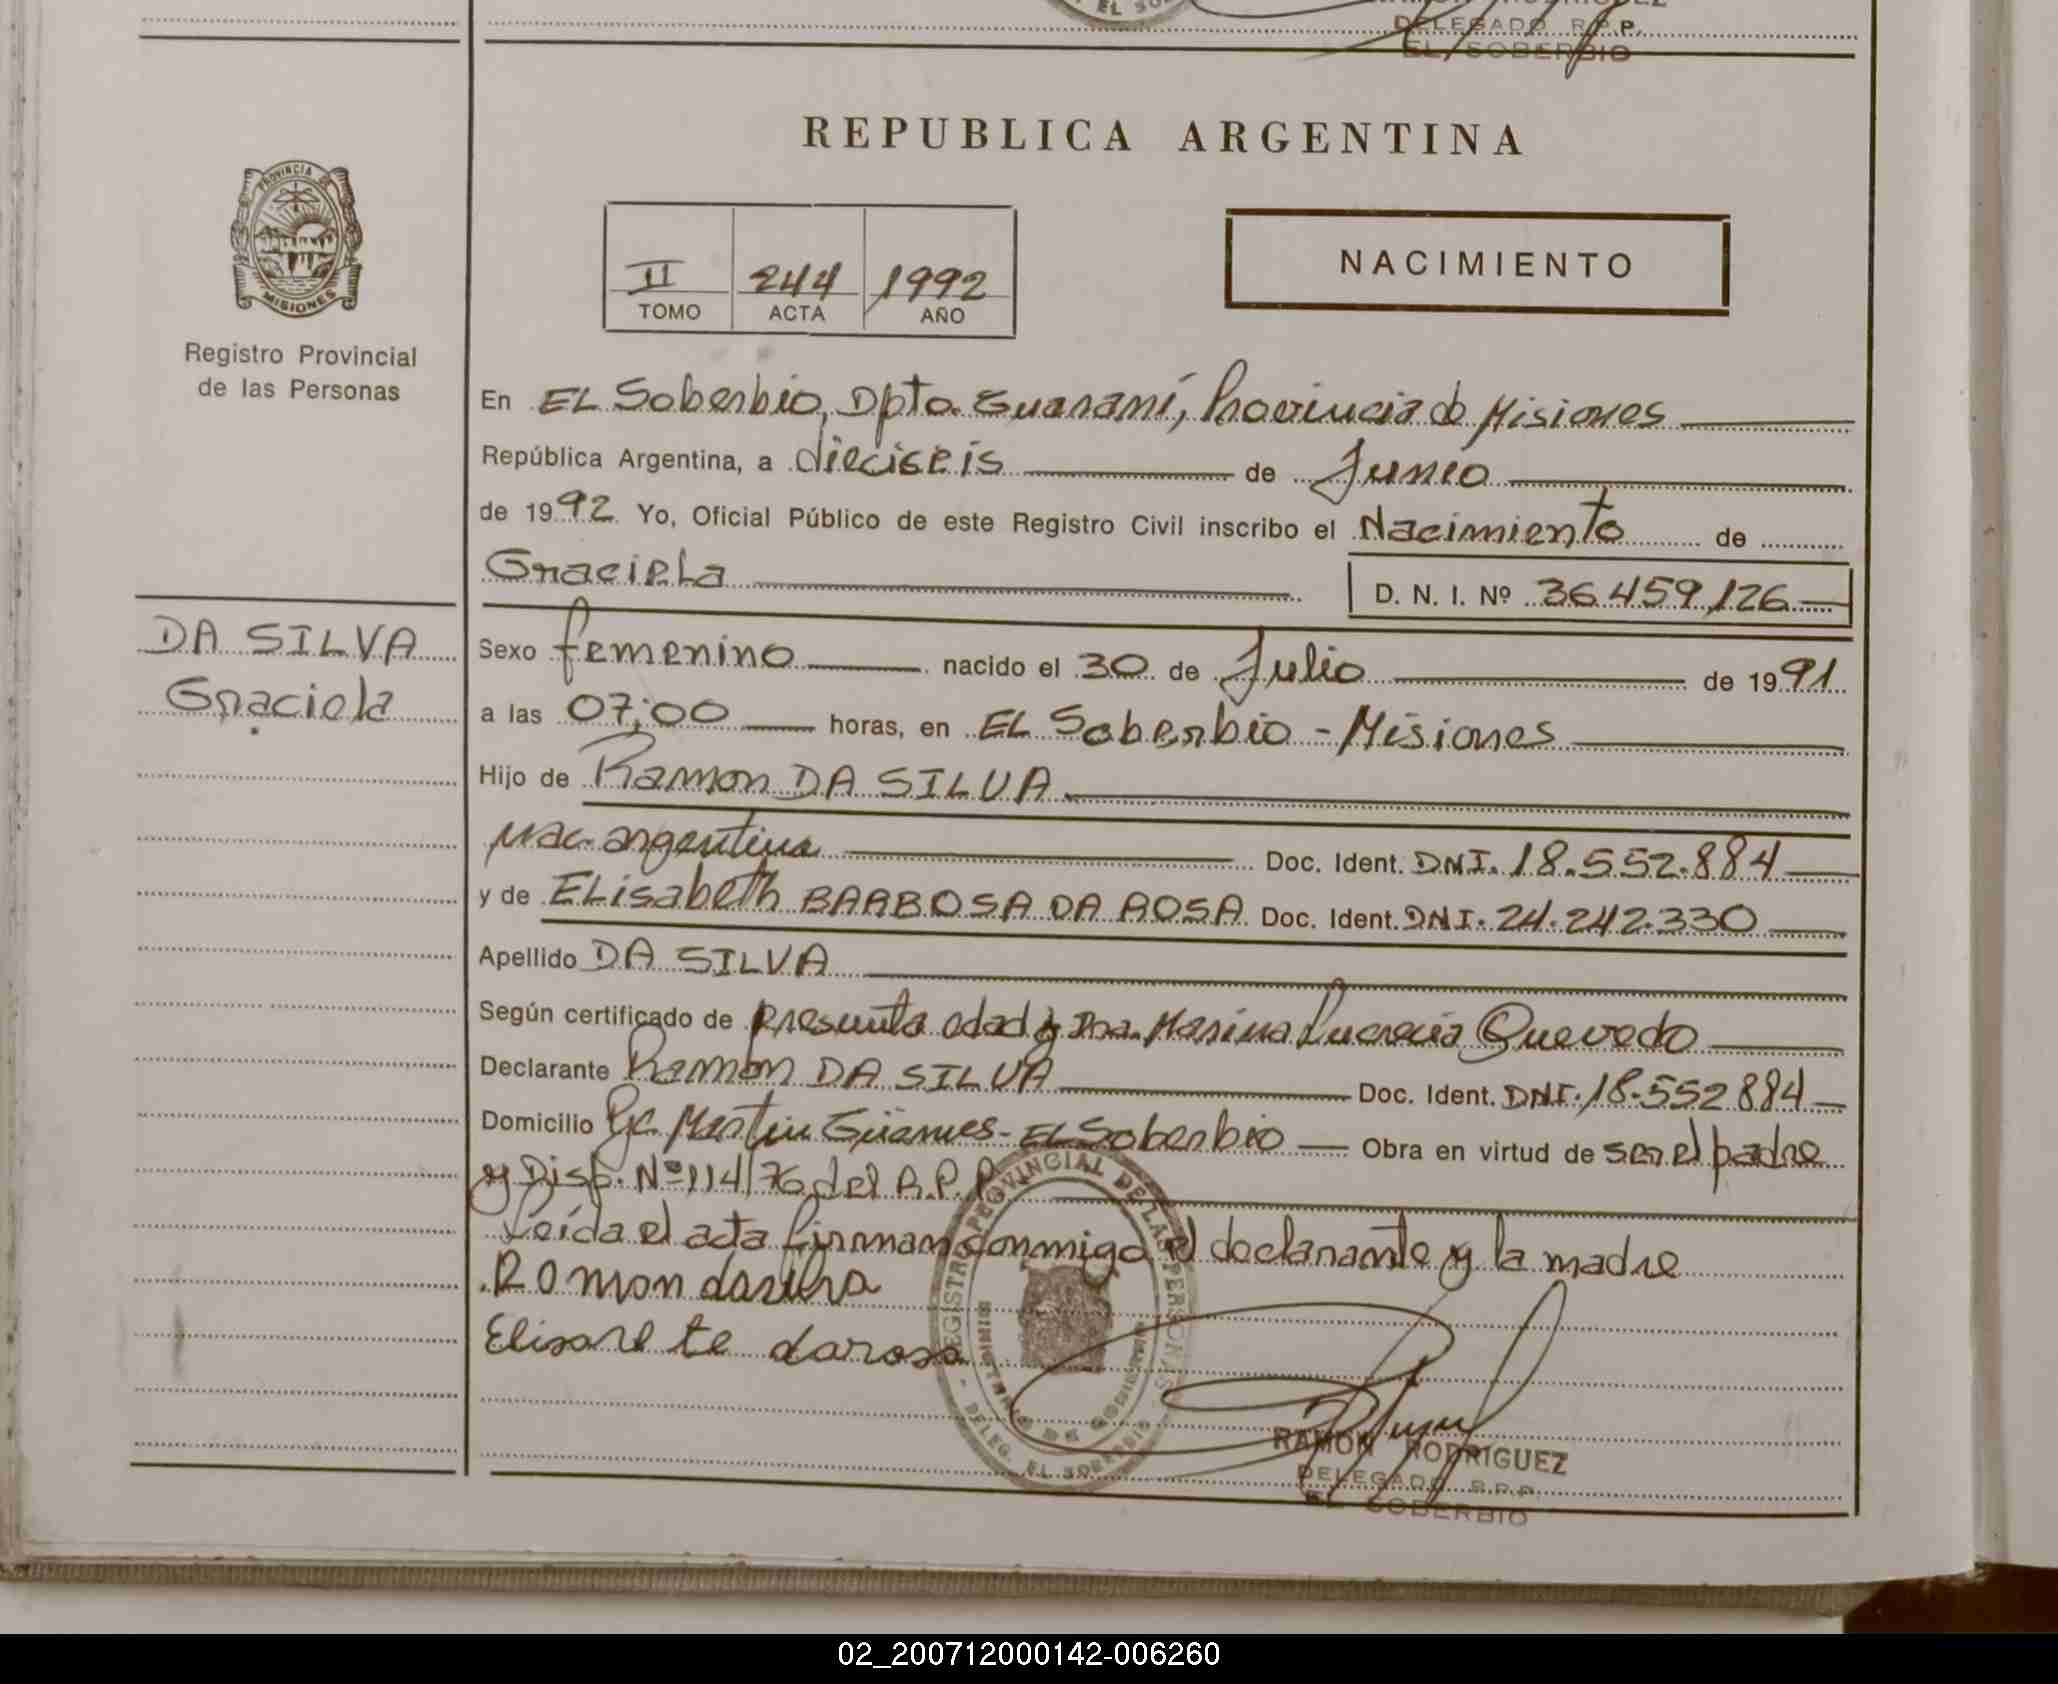 DELEGADO R.P.P.
EL SOBERBIO
REPUBLICA ARGENTINA
PROVINCIA DE
MISIONES
Registro Provincial
de las Personas
II 244 1992
TOMO ACTA AÑO
NACIMIENTO
En EL Soberbio, Dpto. Guaraní, Provincia de Misiones
República Argentina, a dieciseis de Junio
de 1992 Yo, Oficial Público de este Registro Civil inscribo el Nacimiento de
Graciela D. N. I. Nº 36.459.126
DA SILVA
Graciela
Sexo femenino nacido el 30 de Julio de 1991
a las 07:00 horas, en EL Soberbio - Misiones
Hijo de Ramon DA SILVA
Nac. argentina Doc. Ident. DNI. 18.552.884
y de ELisabeth BARBOSA DA ROSA Doc. Ident. DNI. 24.242.330
Apellido DA SILVA
Según certificado de presunta edad y Dra. Marina Lucrecia Quevedo
Declarante Ramon DA SILVA Doc. Ident. DNI. 18.552884
Domicilio Martin Güemes - EL Soberbio Obra en virtud de ser el padre
y Disp. Nº 114/76 del R.P.P.
Leída el acta firman conmigo el declarante y la madre
Ramon dasilva
darosa
REGISTRO PROVINCIAL DE LAS PERSONAS
DELEG. EL SOBERBIO
RAMON RODRIGUEZ
DELEGADO R.P.P.
EL SOBERBIO
02_200712000142-006260